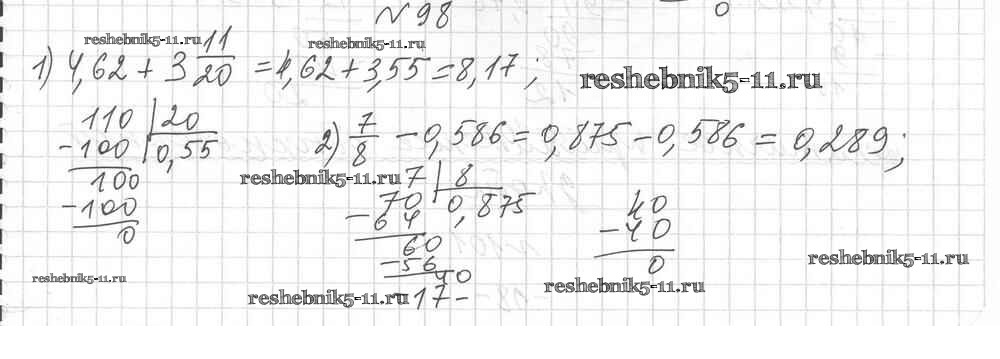 №98
0
reshebnik5-11.ru reshebnik5-11.ru
1) 4,62 + 3 11/20 = 4,62 + 3,55 = 8,17 ;
reshebnik5-11.ru
110 | 20
-100 | 0,55
100
-100
0
2) 7/8 - 0,586 = 0,875 - 0,586 = 0,289 ;
reshebnik5-11.ru
7 | 8
70 0,875
-64
60
-56
40
17-
40
-40
0
reshebnik5-11.ru
reshebnik5-11.ru
reshebnik5-11.ru
reshebnik5-11.ru